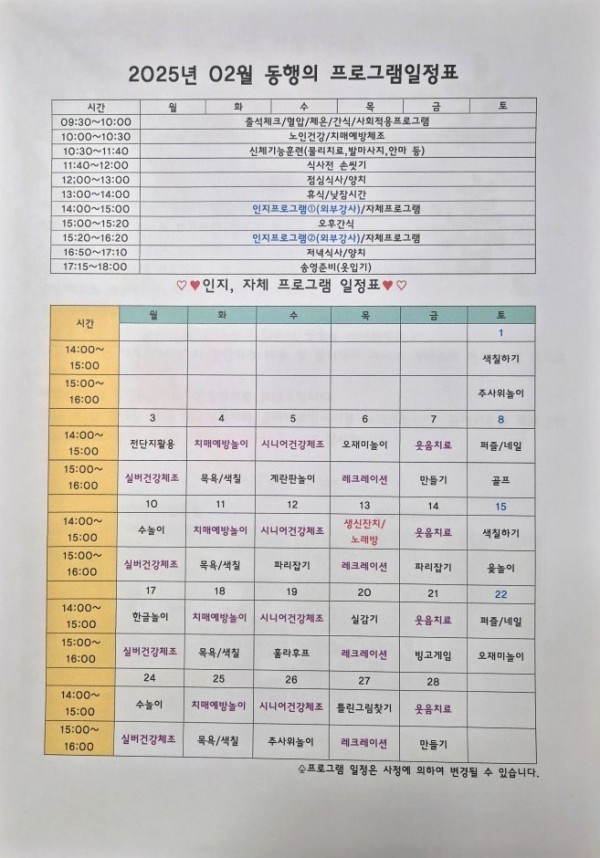 2025년 02월 동행의 프로그램일정표
시간 월 화 수 목 금 토
09:30~10:00 출석체크/혈압/체온/간식/사회적응프로그램
10:00~10:30 노인건강/치매예방체조
10:30~11:40 신체기능훈련(물리치료,발마사지,안마 등)
11:40~12:00 식사전 손씻기
12:00~13:00 점심식사/양치
13:00~14:00 휴식/낮잠시간
14:00~15:00 인지프로그램①(외부강사)/자체프로그램
15:00~15:20 오후간식
15:20~16:20 인지프로그램②(외부강사)/자체프로그램
16:50~17:10 저녁식사/양치
17:15~18:00 송영준비(옷입기)
♡♥인지, 자체 프로그램 일정표♥♡
시간 월 화 수 목 금 토
1
14:00~15:00 색칠하기
15:00~16:00 주사위놀이
3 4 5 6 7 8
14:00~15:00 전단지활용 치매예방놀이 시니어건강체조 오재미놀이 웃음치료 퍼즐/네일
15:00~16:00 실버건강체조 목욕/색칠 계란판놀이 레크레이션 만들기 골프
10 11 12 13 14 15
14:00~15:00 수놀이 치매예방놀이 시니어건강체조 생신잔치/노래방 웃음치료 색칠하기
15:00~16:00 실버건강체조 목욕/색칠 파리잡기 레크레이션 파리잡기 윷놀이
17 18 19 20 21 22
14:00~15:00 한글놀이 치매예방놀이 시니어건강체조 실감기 웃음치료 퍼즐/네일
15:00~16:00 실버건강체조 목욕/색칠 훌라후프 레크레이션 빙고게임 오재미놀이
24 25 26 27 28
14:00~15:00 수놀이 치매예방놀이 시니어건강체조 틀린그림찾기 웃음치료
15:00~16:00 실버건강체조 목욕/색칠 주사위놀이 레크레이션 만들기
♤프로그램 일정은 사정에 의하여 변경될 수 있습니다.